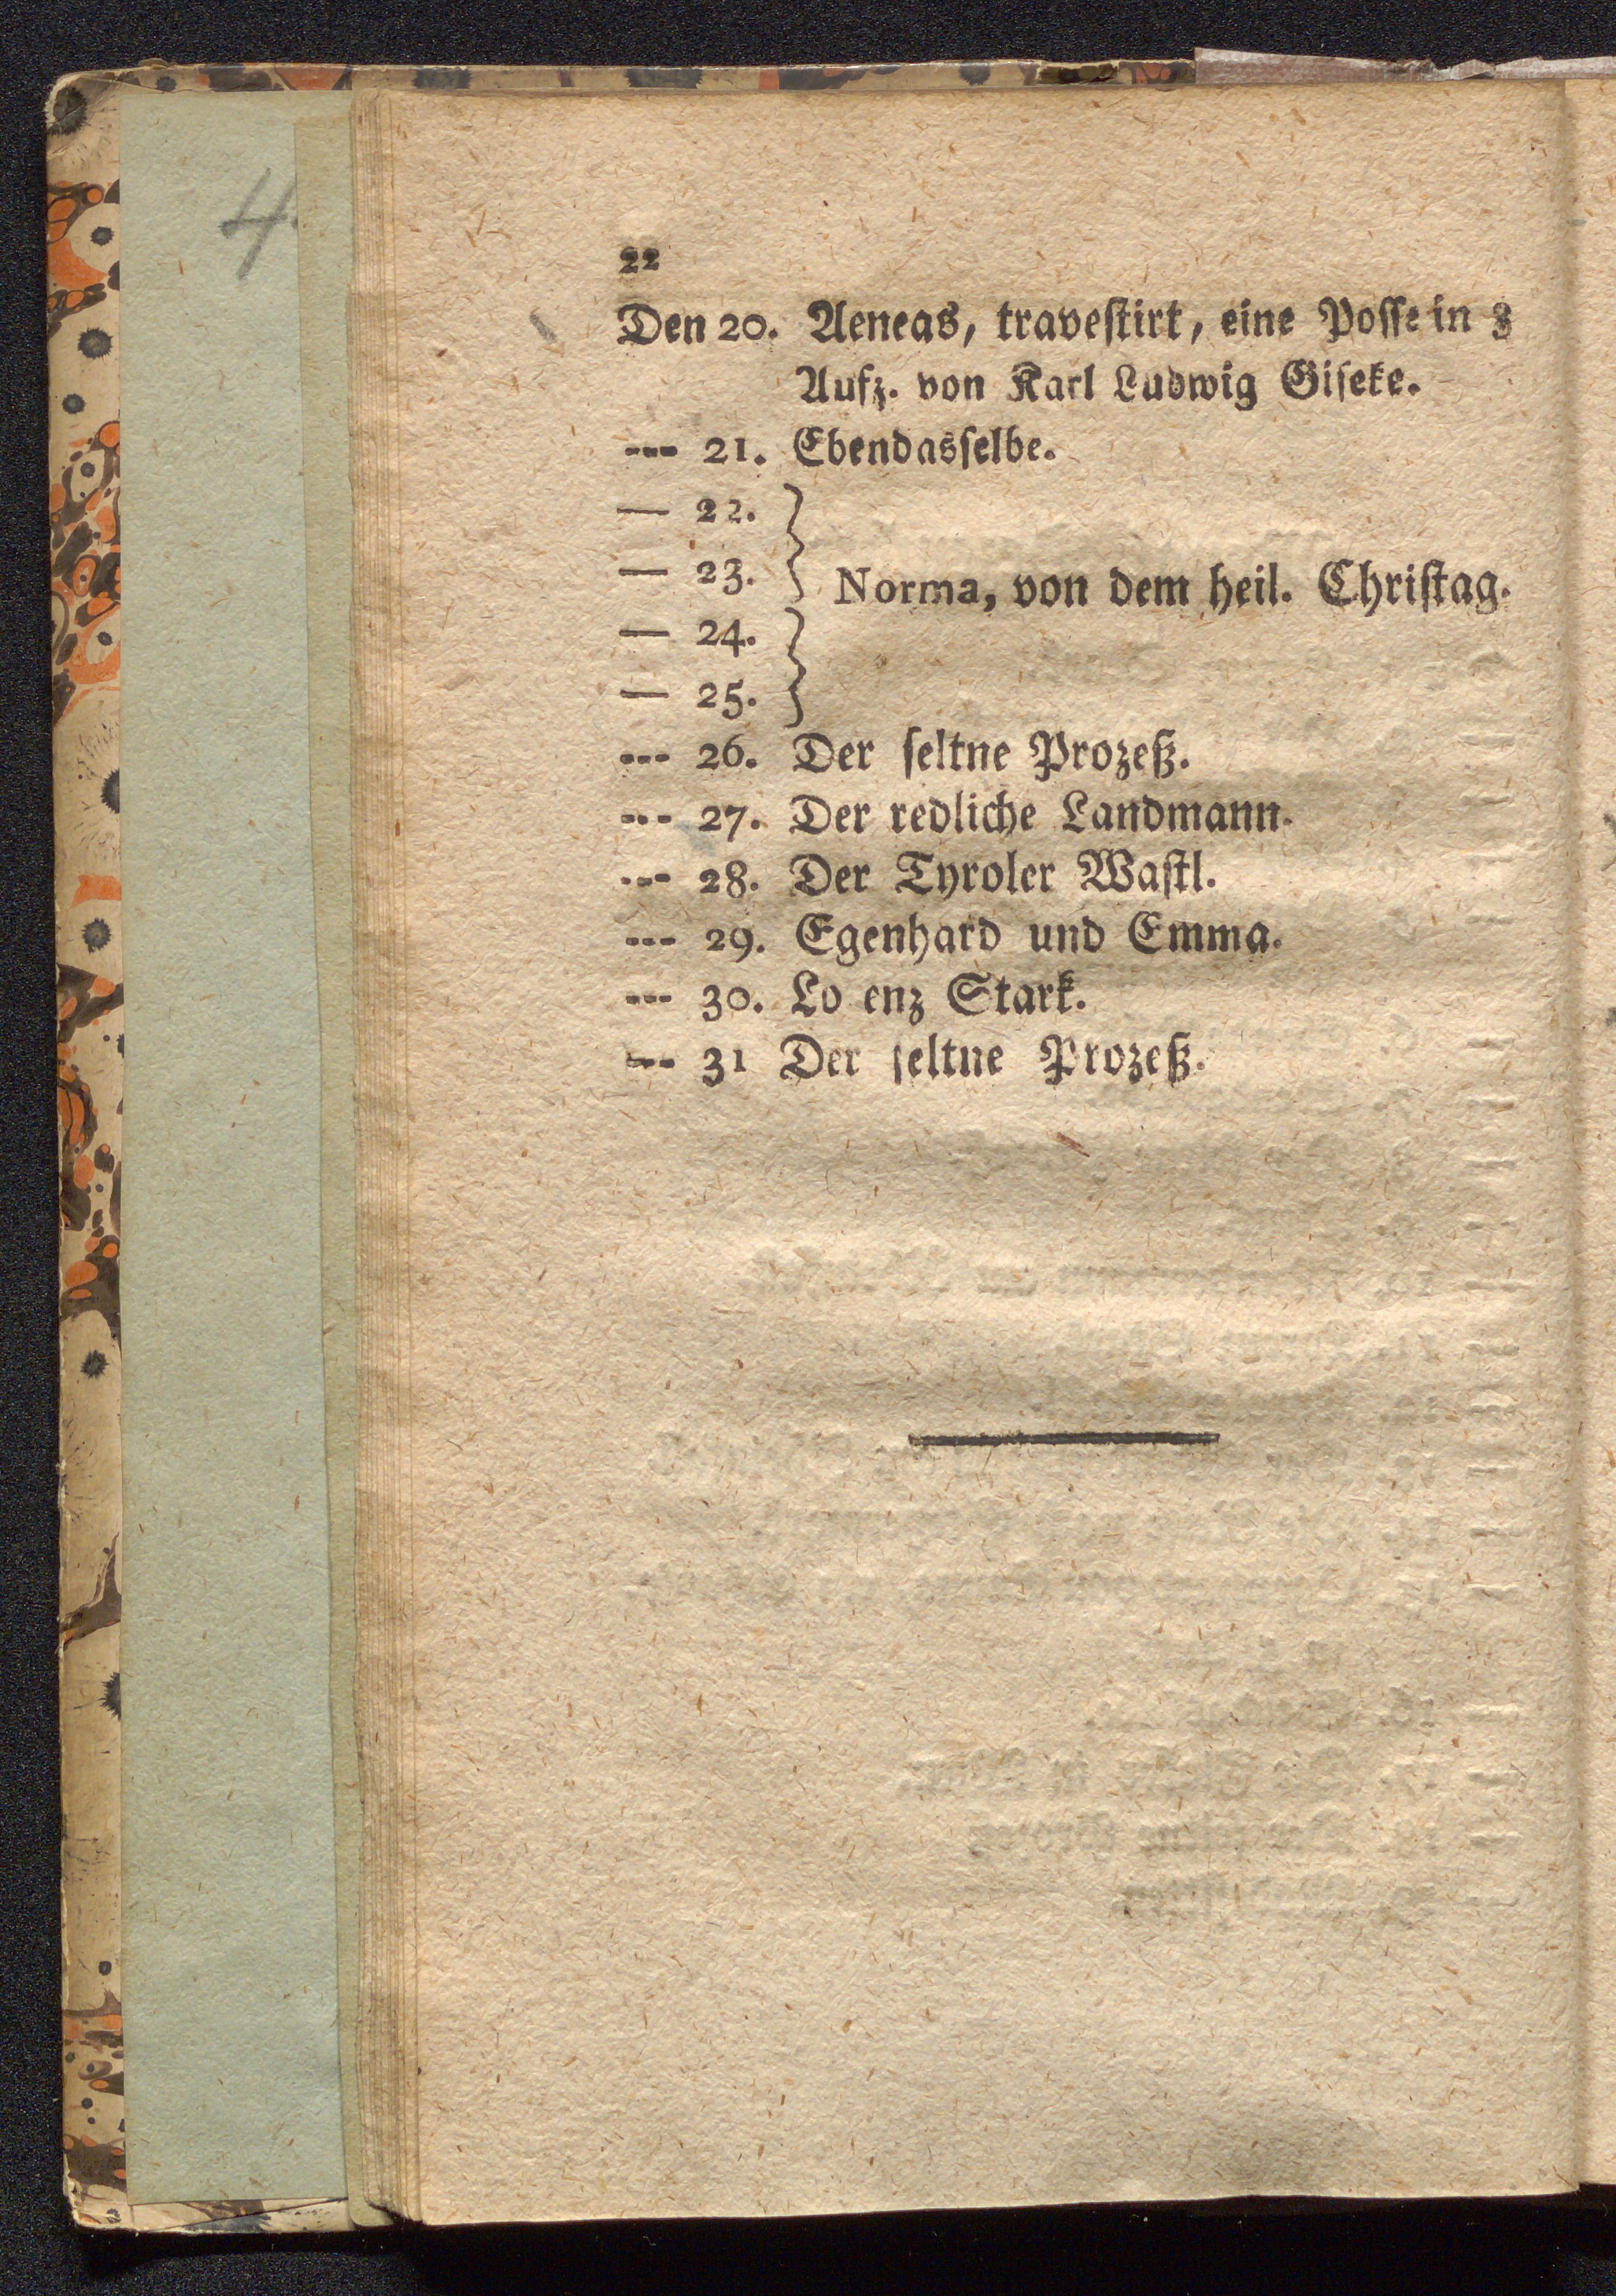 4.
22
Den 20. Aeneas, travestirt, eine Posse in 3
Aufz. von Karl Ludwig Giseke.
--- 21. Ebendasselbe.
— 22.
— 23.
Norma, von dem heil. Christag.
— 24.
— 25.
--- 26. Der seltne Prozeß.
--- 27. Der redliche Landmann.
--- 28. Der Tyroler Wastl.
--- 29. Egenhard und Emma.
--- 30. Lo enz Stark.
--- 31 Der seltne Prozeß.